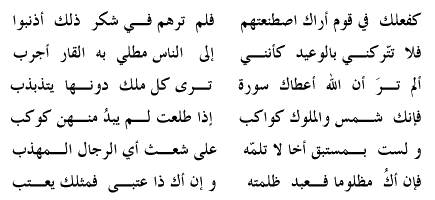 كفعلك في قوم أراك اصطنعتهم فلم ترهم في شكر ذلك أذنبوا
فلا تتركني بالوعيد كأنني إلى الناس مطلي به القار أجرب
ألم ترَ أن الله أعطاك سورة ترى كل ملك دونها يتذبذب
فإنك شمس والملوك كواكب إذا طلعت لم يبدُ منهن كوكب
و لست بمستبق أخا لا تلمّه على شعث أي الرجال المهذب
فإن أكُ مظلوما فعبد ظلمته و إن أك ذا عتبى فمثلك يعتب